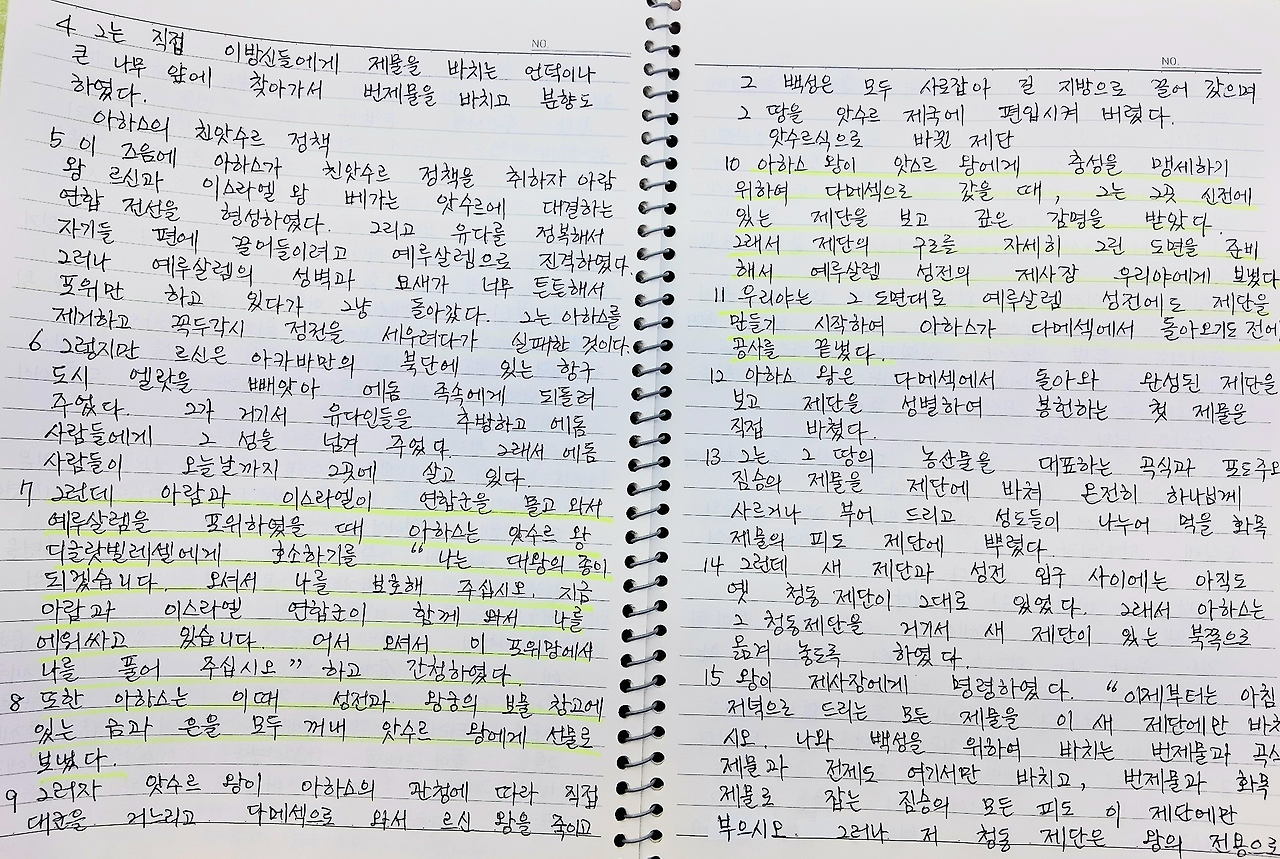 NO.
4 그는 직접 이방신들에게 제물을 바치는 언덕이나
큰 나무 앞에 찾아가서 번제물을 바치고 분향도
하였다.
아하스의 친앗수르 정책
5 이 즈음에 아하스가 친앗수르 정책을 취하자 아람
왕 르신과 이스라엘 왕 베가는 앗수르에 대결하는
연합 전선을 형성하였다. 그리고 유다를 정복해서
자기들 편에 끌어들이려고 예루살렘으로 진격하였다.
그러나 예루살렘의 성벽과 요새가 너무 튼튼해서
포위만 하고 있다가 그냥 돌아갔다. 그는 아하스를
제거하고 꼭두각시 정전을 세우려다가 실패한 것이다.
6 그렇지만 르신은 아카바만의 북단에 있는 항구
도시 엘랏을 빼앗아 에돔 족속에게 되돌려
주었다. 그가 거기서 유다인들을 추방하고 에돔
사람들에게 그 성을 넘겨 주었다. 그래서 에돔
사람들이 오늘날까지 그곳에 살고 있다.
7 그런데 아람과 이스라엘이 연합군을 몰고 와서
예루살렘을 포위하였을 때 아하스는 앗수르 왕
디글랏빌레셀에게 호소하기를 "나는 대왕의 종이
되겠습니다. 오셔서 나를 보호해 주십시오. 지금
아람과 이스라엘 연합군이 함께 와서 나를
에워싸고 있습니다. 어서 오셔서 이 포위망에서
나를 풀어 주십시오" 하고 간청하였다.
8 또한 아하스는 이때 성전과 왕궁의 보물 창고에
있는 금과 은을 모두 꺼내 앗수르 왕에게 선물로
보냈다.
9 그러자 앗수르 왕이 아하스의 관청에 따라 직접
대군을 거느리고 다메섹으로 와서 르신 왕을 죽이고
NO.
그 백성은 모두 사로잡아 길 지방으로 끌어 갔으며
그 땅을 앗수르 제국에 편입시켜 버렸다.
앗수르식으로 바뀐 제단
10 아하스 왕이 앗스르 왕에게 충성을 맹세하기
위하여 다메섹으로 갔을 때, 그는 그곳 신전에
있는 제단을 보고 깊은 감명을 받았다.
그래서 제단의 구조를 자세히 그린 도면을 준비
해서 예루살렘 성전의 제사장 우리야에게 보냈다.
11 우리야는 그 도면대로 예루살렘 성전에도 제단을
만들기 시작하여 아하스가 다메섹에서 돌아오기도 전에
공사를 끝냈다.
12 아하스 왕은 다메섹에서 돌아와 완성된 제단을
보고 제단을 성별하여 봉헌하는 첫 제물을
직접 바쳤다.
13 그는 그 땅의 농산물을 대표하는 곡식과 포도주와
짐승의 제물을 제단에 바쳐 온전히 하나님께
사르거나 부어 드리고 성도들이 나누어 먹을 화목
제물의 피도 제단에 뿌렸다.
14 그런데 새 제단과 성전 입구 사이에는 아직도
옛 청동 제단이 그대로 있었다. 그래서 아하스는
그 청동제단을 거기서 새 제단이 있는 북쪽으로
옮겨 놓도록 하였다.
15 왕이 제사장에게 명령하였다. "이제부터는 아침
저녁으로 드리는 모든 제물을 이 새 제단에만 바치
시오. 나와 백성을 위하여 바치는 번제물과 곡식
제물과 전제도 여기서만 바치고, 번제물과 화목
제물로 잡는 짐승의 모든 피도 이 제단에만
부으시오. 그러나 저 청동 제단은 왕의 전용으로